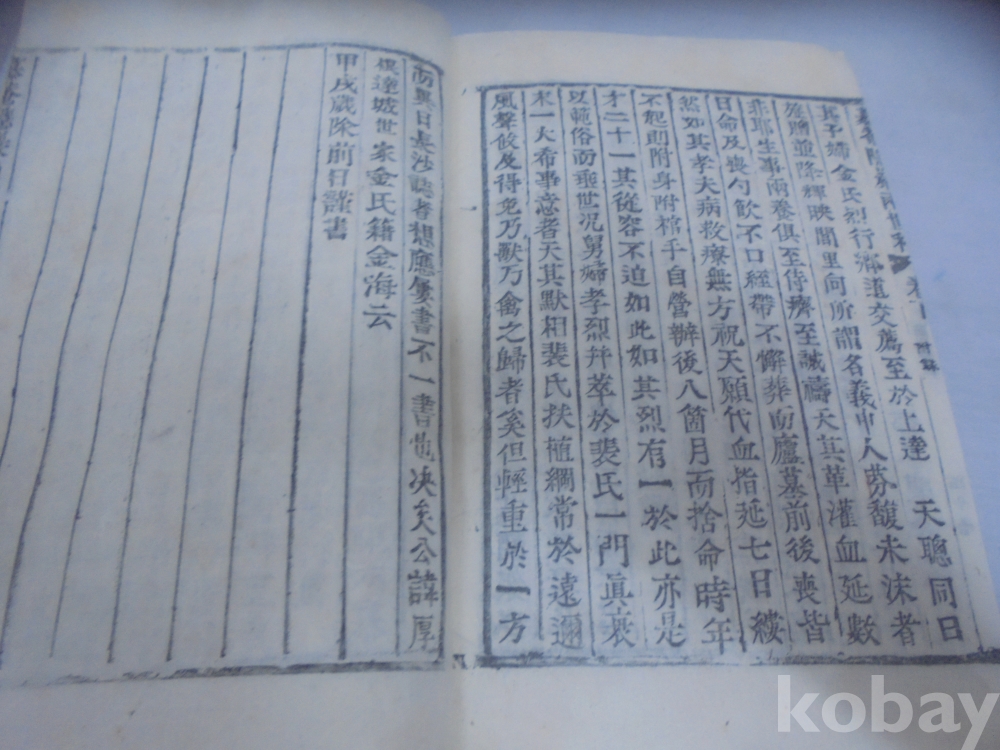 其子婦金氏烈行鄉道交薦至於上達 天聰同日
旌贈並除輝映閭里向所謂名義中人芬馥未沫者
非耶生事兩養俱至侍癠至誠禱天其革灌血延數
日命及喪勺飮不口絰帶不懈葬而廬墓前後喪皆
然如其孝夫病救療無方祝天願代血指延七日縷
不起則附身附棺乎自營辦後八箇月而捨命時年
才二十一其從容不迫如此如其烈有一於此亦是
以範俗而垂世况舅婦孝烈幷萃於裴氏一門眞衰
末一大希事意者天其默相裴氏扶植綱常於遠邇
風聲攸及得免乃獸乃禽之歸者矣但輕重於一方
而異日長沙誌者想應屢書不一書也决矣公諱厚
達城世家金氏籍金海云
甲戌歲除前日謹書
卷下 附錄
kobay